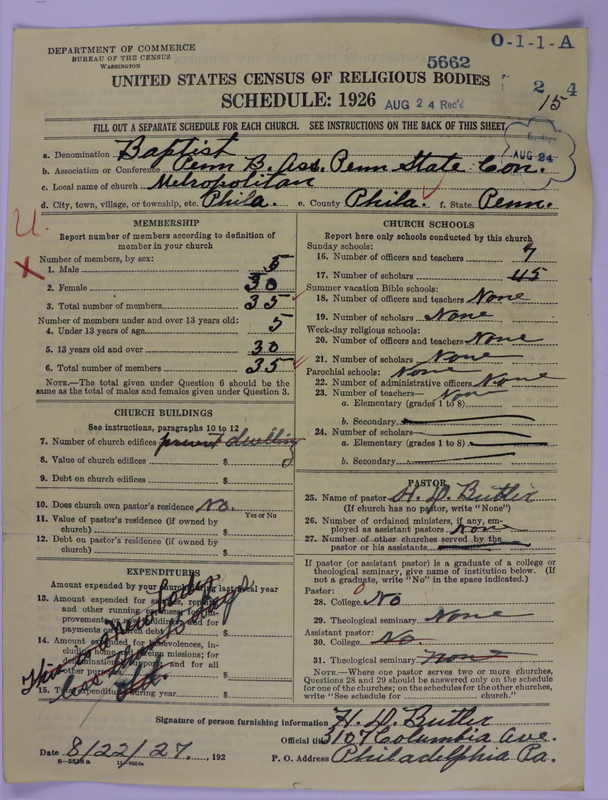 DEPARTMENT OF COMMERCE
BUREAU OF THE CENSUS
WASHINGTON
O-1-1-A
5662
UNITED STATES CENSUS OF RELIGIOUS BODIES
SCHEDULE: 1926
AUG 24 Rec'd
2 4
15
FILL OUT A SEPARATE SCHEDULE FOR EACH CHURCH. SEE INSTRUCTIONS ON THE BACK OF THIS SHEET
AUG 24
a. Denomination Baptist
b. Association or Conference Penn B. Ass. Penn State Con.
c. Local name of church Metropolitan
d. City, town, village, or township, etc. Phila. e. County Phila. f. State Penn.
U.
X
MEMBERSHIP
Report number of members according to definition of
member in your church
Number of members, by sex:
1. Male 5
2. Female 30
3. Total number of members 35
Number of members under and over 13 years old:
4. Under 13 years of age 5
5. 13 years old and over 30
6. Total number of members 35
NOTE.—The total given under Question 6 should be the
same as the total of males and females given under Question 3.
CHURCH BUILDINGS
See instructions, paragraphs 10 to 12
7. Number of church edifices dwelling
8. Value of church edifices $
9. Debt on church edifices $
10. Does church own pastor's residence No.
Yes or No
11. Value of pastor's residence (if owned by
church) $
12. Debt on pastor's residence (if owned by
church) $
EXPENDITURES
Amount expended by your church during last fiscal year
13. Amount expended for
and other running
$
14. Amount expended for benevolences,
missions; for
and for all
$
15. Total expenditures during year $
This a New body
old.
CHURCH SCHOOLS
Report here only schools conducted by this church
Sunday schools:
16. Number of officers and teachers 7
17. Number of scholars 45
Summer vacation Bible schools:
18. Number of officers and teachers None
19. Number of scholars None
Week-day religious schools:
20. Number of officers and teachers None
21. Number of scholars None
Parochial schools: None
22. Number of administrative officers None
23. Number of teachers— Non
a. Elementary (grades 1 to 8)
b. Secondary
24. Number of scholars—
a. Elementary (grades 1 to 8)
b. Secondary
PASTOR
25. Name of pastor H. D. Butler
(If church has no pastor, write "None")
26. Number of ordained ministers, if any, em-
ployed as assistant pastors None
27. Number of other churches served by the
pastor or his assistants
If pastor (or assistant pastor) is a graduate of a college or
theological seminary, give name of institution below. (If
not a graduate, write "No" in the space indicated.)
Pastor:
28. College No
29. Theological seminary None
Assistant pastor:
30. College No.
31. Theological seminary None
NOTE.—Where one pastor serves two or more churches,
Questions 28 and 29 should be answered only on the schedule
for one of the churches; on the schedules for the other churches,
write "See schedule for church."
Signature of person furnishing information H. D. Butler
Official title 3107 Columbia Ave.
Date 8/22/27, 192 P. O. Address Philadelphia Pa.